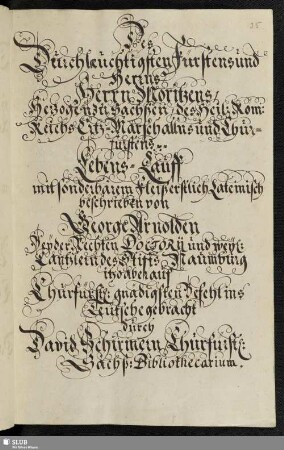 25
Des
Druchleuchtigsten Fürstens und
Herrns
Herrn Moritzens,
Hertzogen zu Sachsen, des Heil: Röm:
Reichs Ertz-Marschallns und Chur-
fürstens..
Lebens-Lauff
mit sonderbarem fleiß erstlich Lateinisch
beschrieben von
George Arnolden
Beyder Rechten Doctorn und weyl:
Cantzlern des Stifts Naumburg
itzo aber auf
Churfürstl: gnädigsten Befehl ins
Teutsche gebracht
durch
David Schirmern, Churfürstl:
Sächs: Bibliothecarium.
SLUB
Wir führen Wissen.